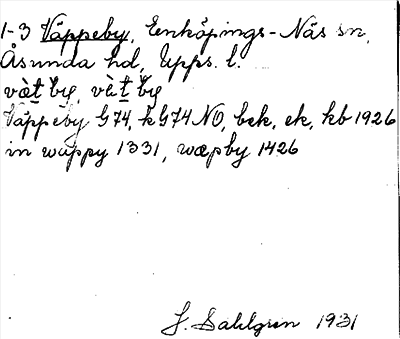 1-3 Väppeby, Enköpings-Näs sn,
Åsunda hd, Upps. l.
Väppeby G74, k G74 NO, bek, ek, kb 1926
in wæppy 1331, wæpby 1426
J. Sahlgren 1931